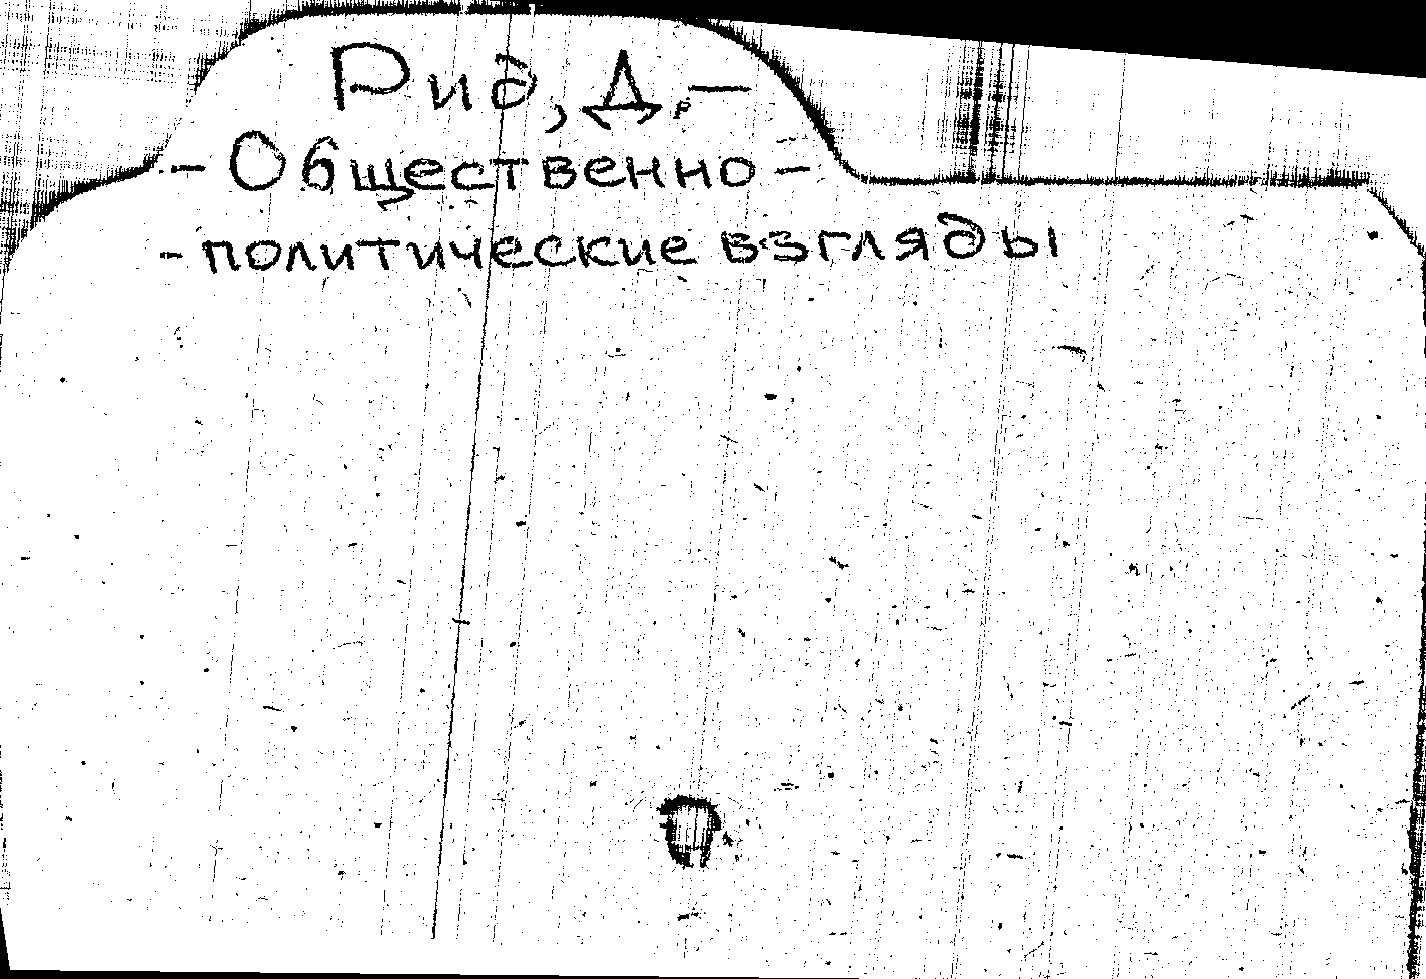 Рид, Д. —
- Общественно -
- политические взгляды